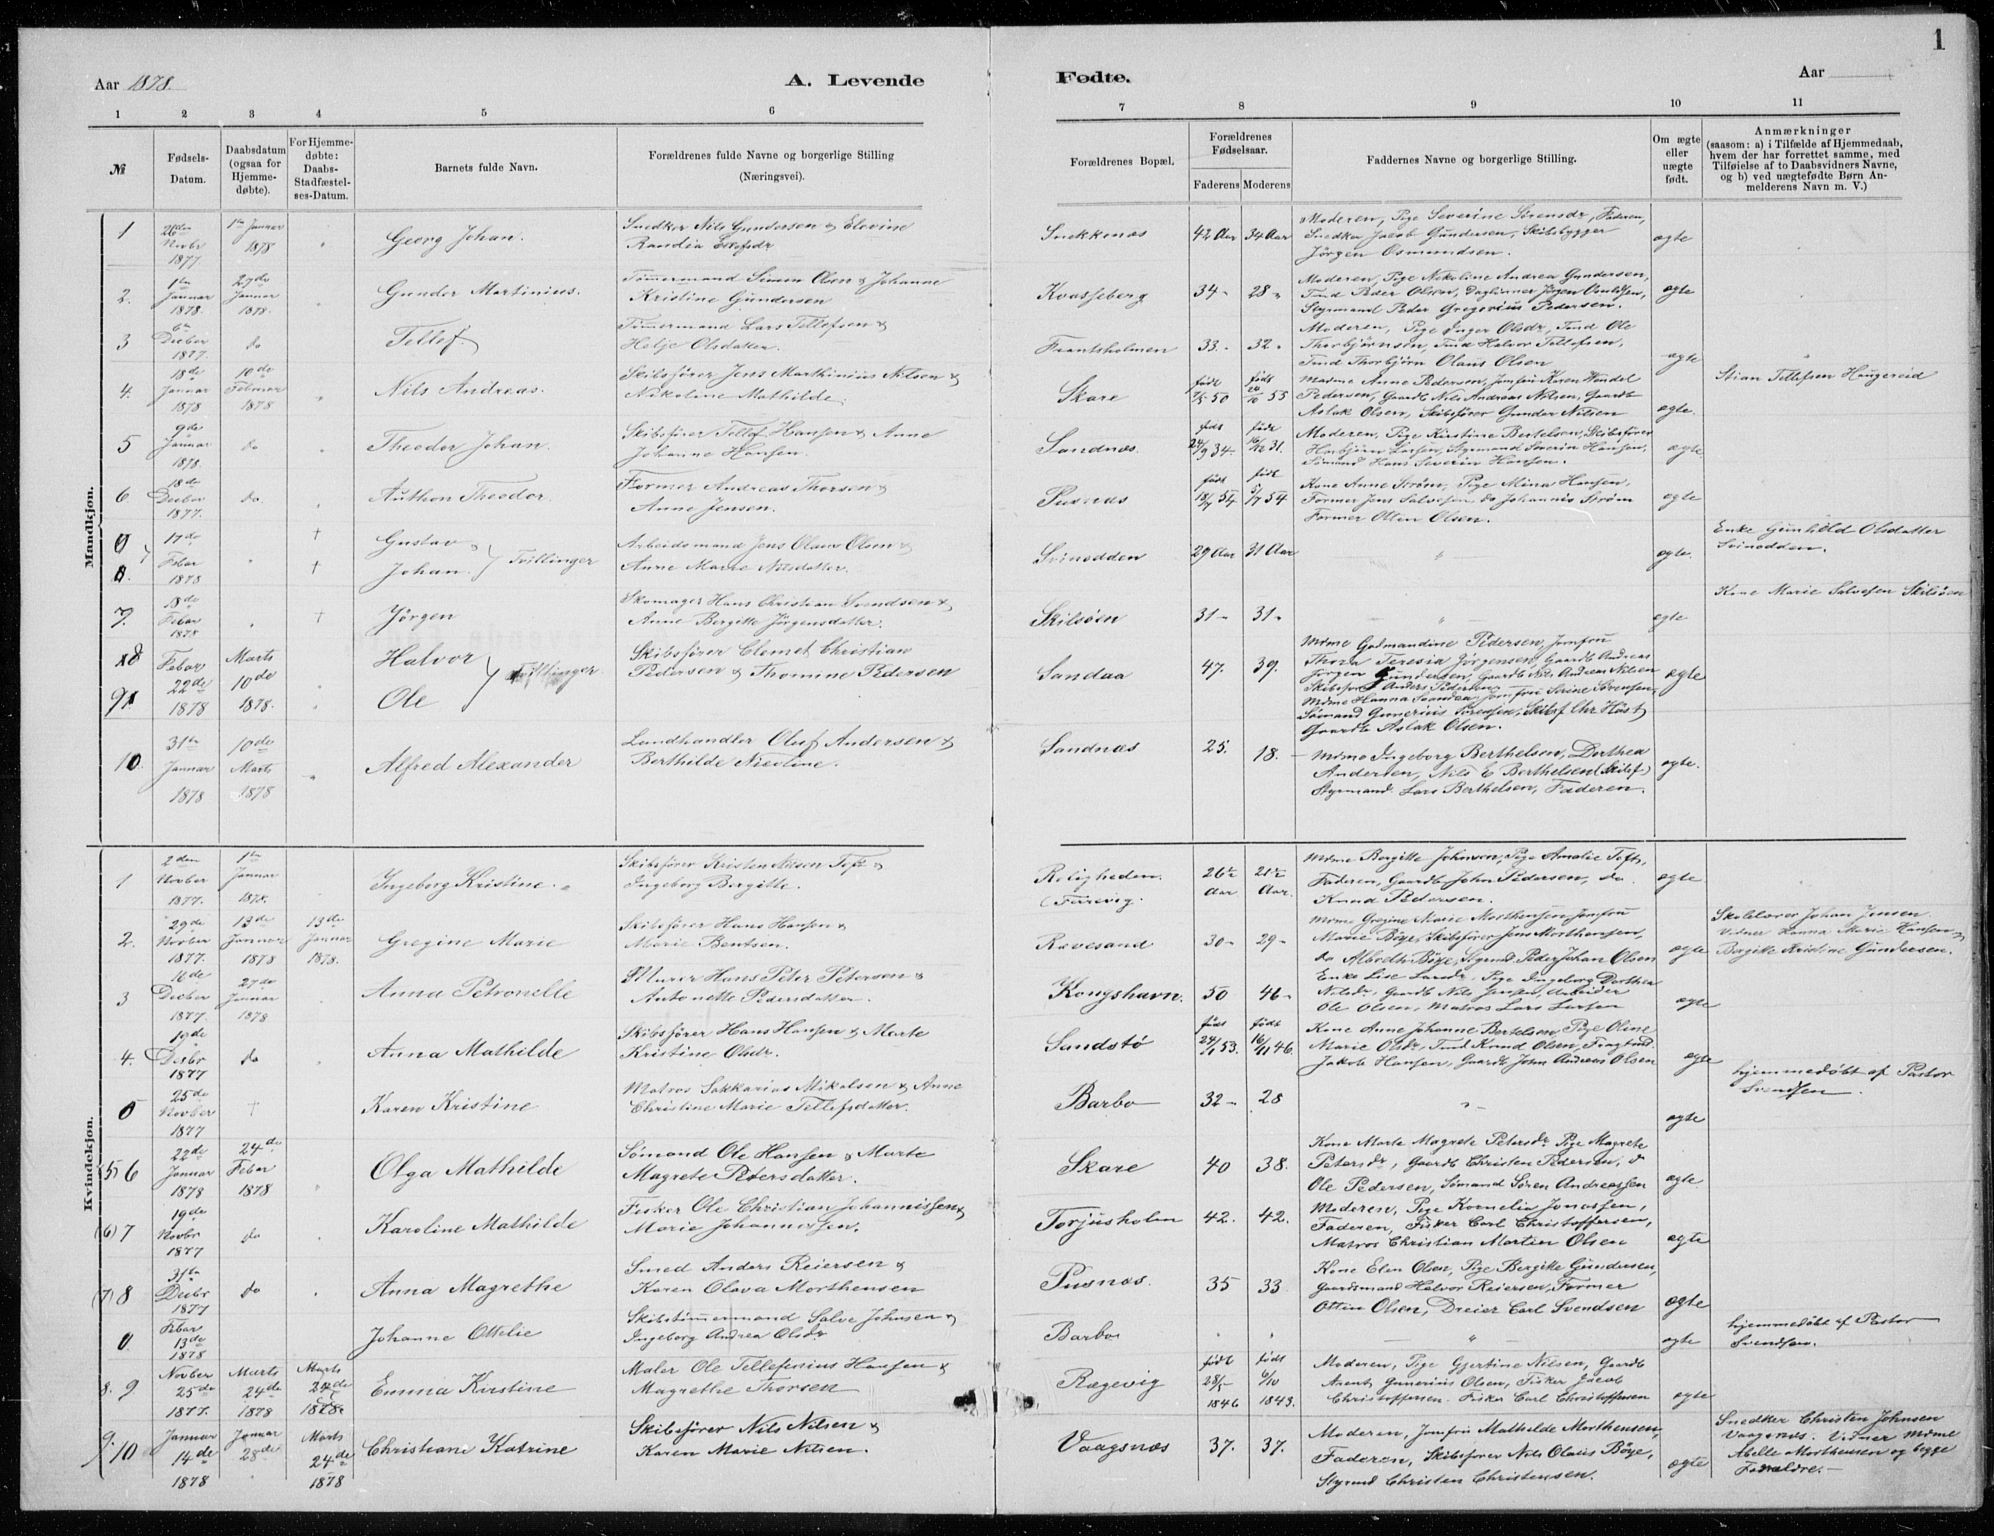 1
Aar 1878.
A. Levende
Fødte.
Aar
1 2 3 4 5 6 7 8 9 10 11
№
Fødsels-Datum.
Daabsdatum (ogsaa for Hjemme-døbte).
For Hjemme-døbte: Daabs-Stadfæstel-ses-Datum.
Barnets fulde Navn.
Forældrenes fulde Navne og borgerlige Stilling (Næringsvei).
Forældrenes Bopæl.
Forældrenes Fødselsaar.
Faderens Moderens
Faddernes Navne og borgerlige Stilling.
Om ægte eller uægte født.
Anmærkninger
(saasom: a) i Tilfælde af Hjemmedaab,
hvem der har forrettet samme, med
Tilføielse af to Daabsvidners Navne,
og b) ved uægtefødte Børn An-
melderens Navn m. V.)
Mandkjøn.
1 26de Novbr 1877 1ste Januar 1878 Georg Johan. Snedker Nils Gundersen & Elevine
Snekkenæs 42 Aar 34 Aar Moderen, Pige Severine Sørensdr, Faderen,
Snedker Jacob Gundersen, Skibsbygger
Jörgen Osmundsen. ægte
2. 1ste Januar 1878 27de Januar 1878. Gunder Martinius. Tømmermand Simon Olsen & Johanne
Kristine Gundersen
Kvasseberg 34 - 28 - Moderen, Pige Nikoline Andrea Gundersen,
Styrmand Peder Gregorius Pedersen. ægte
3 6te Decber 1877. do Tellef Tømmermand Lars Tellefsen &
Helje Olsdatter.
Frantsholmen 33 - 32 - Moderen, Pige Inger Olsdr, Tmd Ole
Thorbjörnsen, Tmd Halvor Tellefsen,
Tmd Thorbjörn Olaus Olsen ægte
4. 18de Januar 1878 10de Februar 1878 Nils Andreas. Skibsfører Jens Marthinius Nilsen &
Nikoline Mathilde.
Skare født 50 født 55 Mdme Anne Pedersen, Jomfru Karen Wendel
Pedersen, Gaardb Nils Andreas Nilsen, Gaardb
Aslak Olsen, Skibsfører Gunder Nilsen ægte.
Stian Tellefsen Haugereid
5 9de Januar 1878. do Theodor Johan. Skibsfører Tellef Hansen & Anne
Johanne Hansen.
Sandnæs. født 24/9 34. født 16/12 31. Moderen, Pige Kirstine Bertelsen, Skibsfører
Larsen, Styrmand Severin Hansen,
Sømand Hans Severin Hansen. ægte
6 18de Decber 1877. do Authon Theodor. Former Andreas Thorsen &
Anne Jensen.
Pusnæs født 18/7 54 født 5/7 54 Kone Anne Strøm, Pige Mina Hansen,
Former Jens Salvesen, do Johannis Strøm
Former Otten Olsen. ægte
0 0. 17de Febar 1878 † † Gustav Johan. Tvillinger Arbeidsmand Jens Olaus Olsen &
Anne Marie Nilsdatter.
Svinodden 29 Aar 31 Aar " ægte.
Enke Gunhild Olsdatter
Svinodden.
7. 18de Febar 1878 † Jörgen Skomager Hans Christian Svendsen &
Anne Bergitte Jörgensdatter.
Skilsöen 31 - 31 - " ægte
Kone Marie Salvesen Skilsöen
8 9 Febar 22de 1878 Marts 10de 1878. Halvor Ole Tvillinger. Skibsfører Clemet Christian
Pedersen & Thomine Pedersen
Sandaa 47. 39. Mdme Gudmandine Pedersen, Jomfru
Thora Teresia Jörgensen, Gaardb Andreas
Jörgen Gundersen, Gaardb Nils Andreas Nilsen
Skibsfører Anders Pedersen
Gaardb Aslak Olsen. ægte
10. 31te Januar 1878 10de Marts 1878 Alfred Alexander Landhandler Oluf Andersen &
Berthilde Nicoline.
Sandnæs 25. 18. Mdme Ingeborg Berthelsen, Dorthea
Andersen, Nils E Berthelsen (Skibsf)
Styrmand Lars Berthelsen, Faderen. ægte.
Kvindekjøn.
1 2den Novber 1877. 1ste Januar 1878. Ingeborg Kristine. Skibsfører Kristen Nilsen Toft &
Ingeborg Bergitte.
Roligheden Færevig. 26 Aar 21 Aar. Mdme Bergitte Johnsen, Pige Amalie Toft,
Faderen, Gaardb John Pedersen, do
Knud Pedersen. ægte
2. 29de Novber 1877. 13de Januar 1878 13de Januar 1878. Gregine Marie Skibsfører Hans Hansen &
Marie Bentsen.
Revesand 30 - 29 - Mdme Gregine Marie Morthensen, Jomfru
Marie Böye, Skibsfører Jens Morthensen,
do Albreth Böye, Styrmd Peder Johan Olsen ægte
Skolelærer Johan Jensen.
Vidner Hanna Marie Hansen &
Bergitte Kristine Gundersen.
3 16de Decber 1877. 27de Januar 1878 Anna Petronelle Murer Hans Peter Petersen &
Antonette Pedersdatter.
Kongshavn. 50 46 - Enke Lise Larsdr, Pige Ingeborg Dorthea
Nilsdr, Gaardb Nils Jensen, Arbeider
Ole Olsen, Matros Lars Larsen ægte
4. 19de Decbr 1877 do Anna Mathilde Skibsfører Hans Hansen & Marte
Kristine Olsdr.
Sandstö født 53. født 16/11 46. Kone Anne Johanne Bertelsen, Pige Oline
Marie Olsdr, Tmd Knud Olsen,
Jakob Hansen, Gaardb John Andreas Olsen ægte
0 25de Novber 1877 † Karen Kristine Matros Sakkarias Mikalsen & Anne
Christine Marie Tellefsdatter.
Barbo 32 - 28 " ægte
hjemmedøbt af Pastor
Svendsen.
(5) 6 22de Januar 1878 24de Feber 1878 Olga Mathilde Sømand Ole Hansen & Marte
Magrete Petersdatter.
Skare 40 38. Kone Marte Magrete Petersdr Pige Magrete
Petersdr, Gaardb Christen Pedersen, d
Ole Pedersen, Sømand Søren Andreassen ægte.
(6) 7 19de Novbr 1877 do Karoline Mathilde Fisker Ole Christian Johannissen &
Marie Johannessen.
Torjusholm 42. 42. Moderen, Pige Kornelia Jonassen,
Faderen, Fisker Carl Christoffersen,
Matros Christian Martin Olsen ægte
(7) 8 31te Decbr 1877 do Anna Magrethe Smed Anders Reiersen &
Karen Olava Morthensen
Pusnæs. 35 33. Kone Elen Olsen, Pige Bergitte Gundersen,
Gaardmand Halvor Reiersen, Former
Ottin Olsen, Dreier Carl Svendsen ægte
0. Febar 13de 1878 Johanne Ottelie Skibstømmermand Salve Johnsen &
Ingeborg Andrea Olsdr
Barbo " ægte
hjemmedøbt af Pastor
Svendsen.
8. 9 Novber 25de 1877. Marts 24de 1878 Marts 24de 1878. Emma Kirstine Maler Ole Tellefsenius Hansen &
Magrethe Thorsen
Rægevig født 28/5 1846 født 6/10 1843. Moderen, Pige Gjertine Nilsen, Gaardb
Gunerius Olsen, Fisker Jacob
Christoffersen. Fisker Carl Christoffersen ægte
9. 10 Januar 14de 1878 Januar 28de Marts 24de 1878 Christiane Katrine Skibsfører Nils Nilsen &
Karen Marie Nilsen.
Vaagsnæs 37. 37. Moderen, Jomfru Mathilde Morthensen,
Faderen, Skibsfører Nils Olaus Böye,
Styrmd Christen Christensen. ægte
Snedker Christen Johnsen
Vaagsnæs. Vidner Mdme
Abelle Morthensen og begge
Forældre.